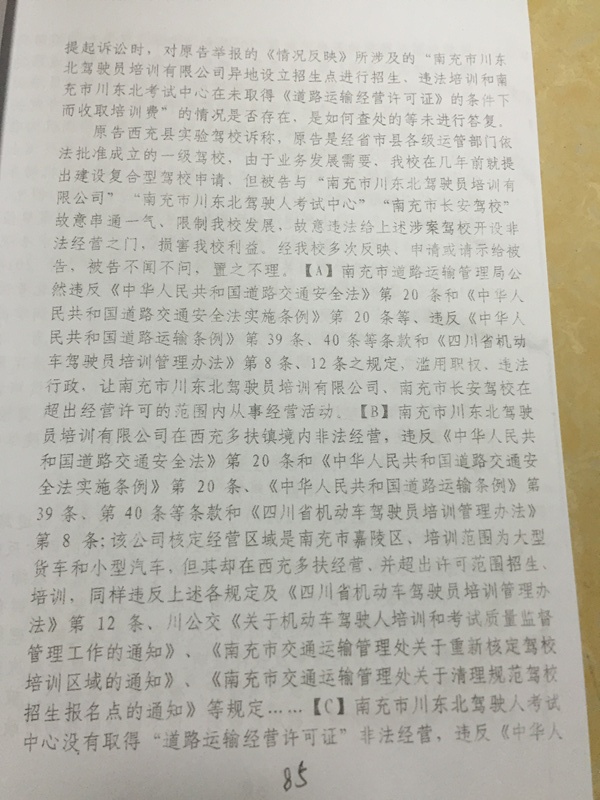 提起诉讼时，对原告举报的《情况反映》所涉及的“南充市川东
北驾驶员培训有限公司异地设立招生点进行招生、违法培训和南
充市川东北考试中心在未取得《道路运输经营许可证》的条件下
而收取培训费”的情况是否存在，是如何查处的等未进行答复。
原告西充县实验驾校诉称，原告是经省市县各级运管部门依
法批准成立的一级驾校，由于业务发展需要，我校在几年前就提
出建设复合型驾校申请、但被告与“南充市川东北驾驶员培训有
限公司”“南充市川东北驾驶人考试中心”“南充市长安驾校”
故意串通一气、限制我校发展，故意违法给上述涉案驾校开设非
法经营之门，损害我校利益。经我校多次反映、申请或请示给被
告，被告不闻不问，置之不理。【A】南充市道路运输管理局公
然违反《中华人民共和国道路交通安全法》第 20 条和《中华人
民共和国道路交通安全法实施条例》第 20 条等、违反《中华人
民共和国道路运输条例》第 39 条、40 条等条款和《四川省机动
车驾驶员培训管理办法》第 8 条、12 条之规定，滥用职权、违法
行政，让南充市川东北驾驶员培训有限公司、南充市长安驾校在
超出经营许可的范围内从事经营活动。【B】南充市川东北驾驶
员培训有限公司在西充多扶镇境内非法经营，违反《中华人民共
和国道路交通安全法》第 20 条和《中华人民共和国道路交通安
全法实施条例》第 20 条、《中华人民共和国道路运输条例》第
39 条、第 40 条等条款和《四川省机动车驾驶员培训管理办法》
第 8 条：该公司核定经营区域是南充市嘉陵区、培训范围为大型
货车和小型汽车，但其却在西充多扶经营、并超出许可范围招生、
培训，同样违反上述各规定及《四川省机动车驾驶员培训管理办
法》第 12 条、川公交《关于机动车驾驶人培训和考试质量监督
管理工作的通知》、《南充市交通运输管理处关于重新核定驾校
培训区域的通知》、《南充市交通运输管理处关于清理规范驾校
招生报名点的通知》等规定……【C】南充市川东北驾驶人考试
中心没有取得“道路运输经营许可证”非法经营，违反《中华人
85